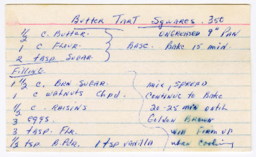 Butter Tart Squares 350
1/2 c. Butter. Ungreased 9" Pan
1 c Flour. Base. Bake 15 min.
2 tbsp Sugar
Filling.
1 1/2 c. Brn Sugar. mix, spread
1 c Walnuts Chpd. Continue to Bake
1/2 c. Raisins 20-25 min until
3 eggs. Golden Brown
3 tbsp. Flr. Will Firm up
1/2 tsp B.Pdr. 1 tsp vanilla when cooling